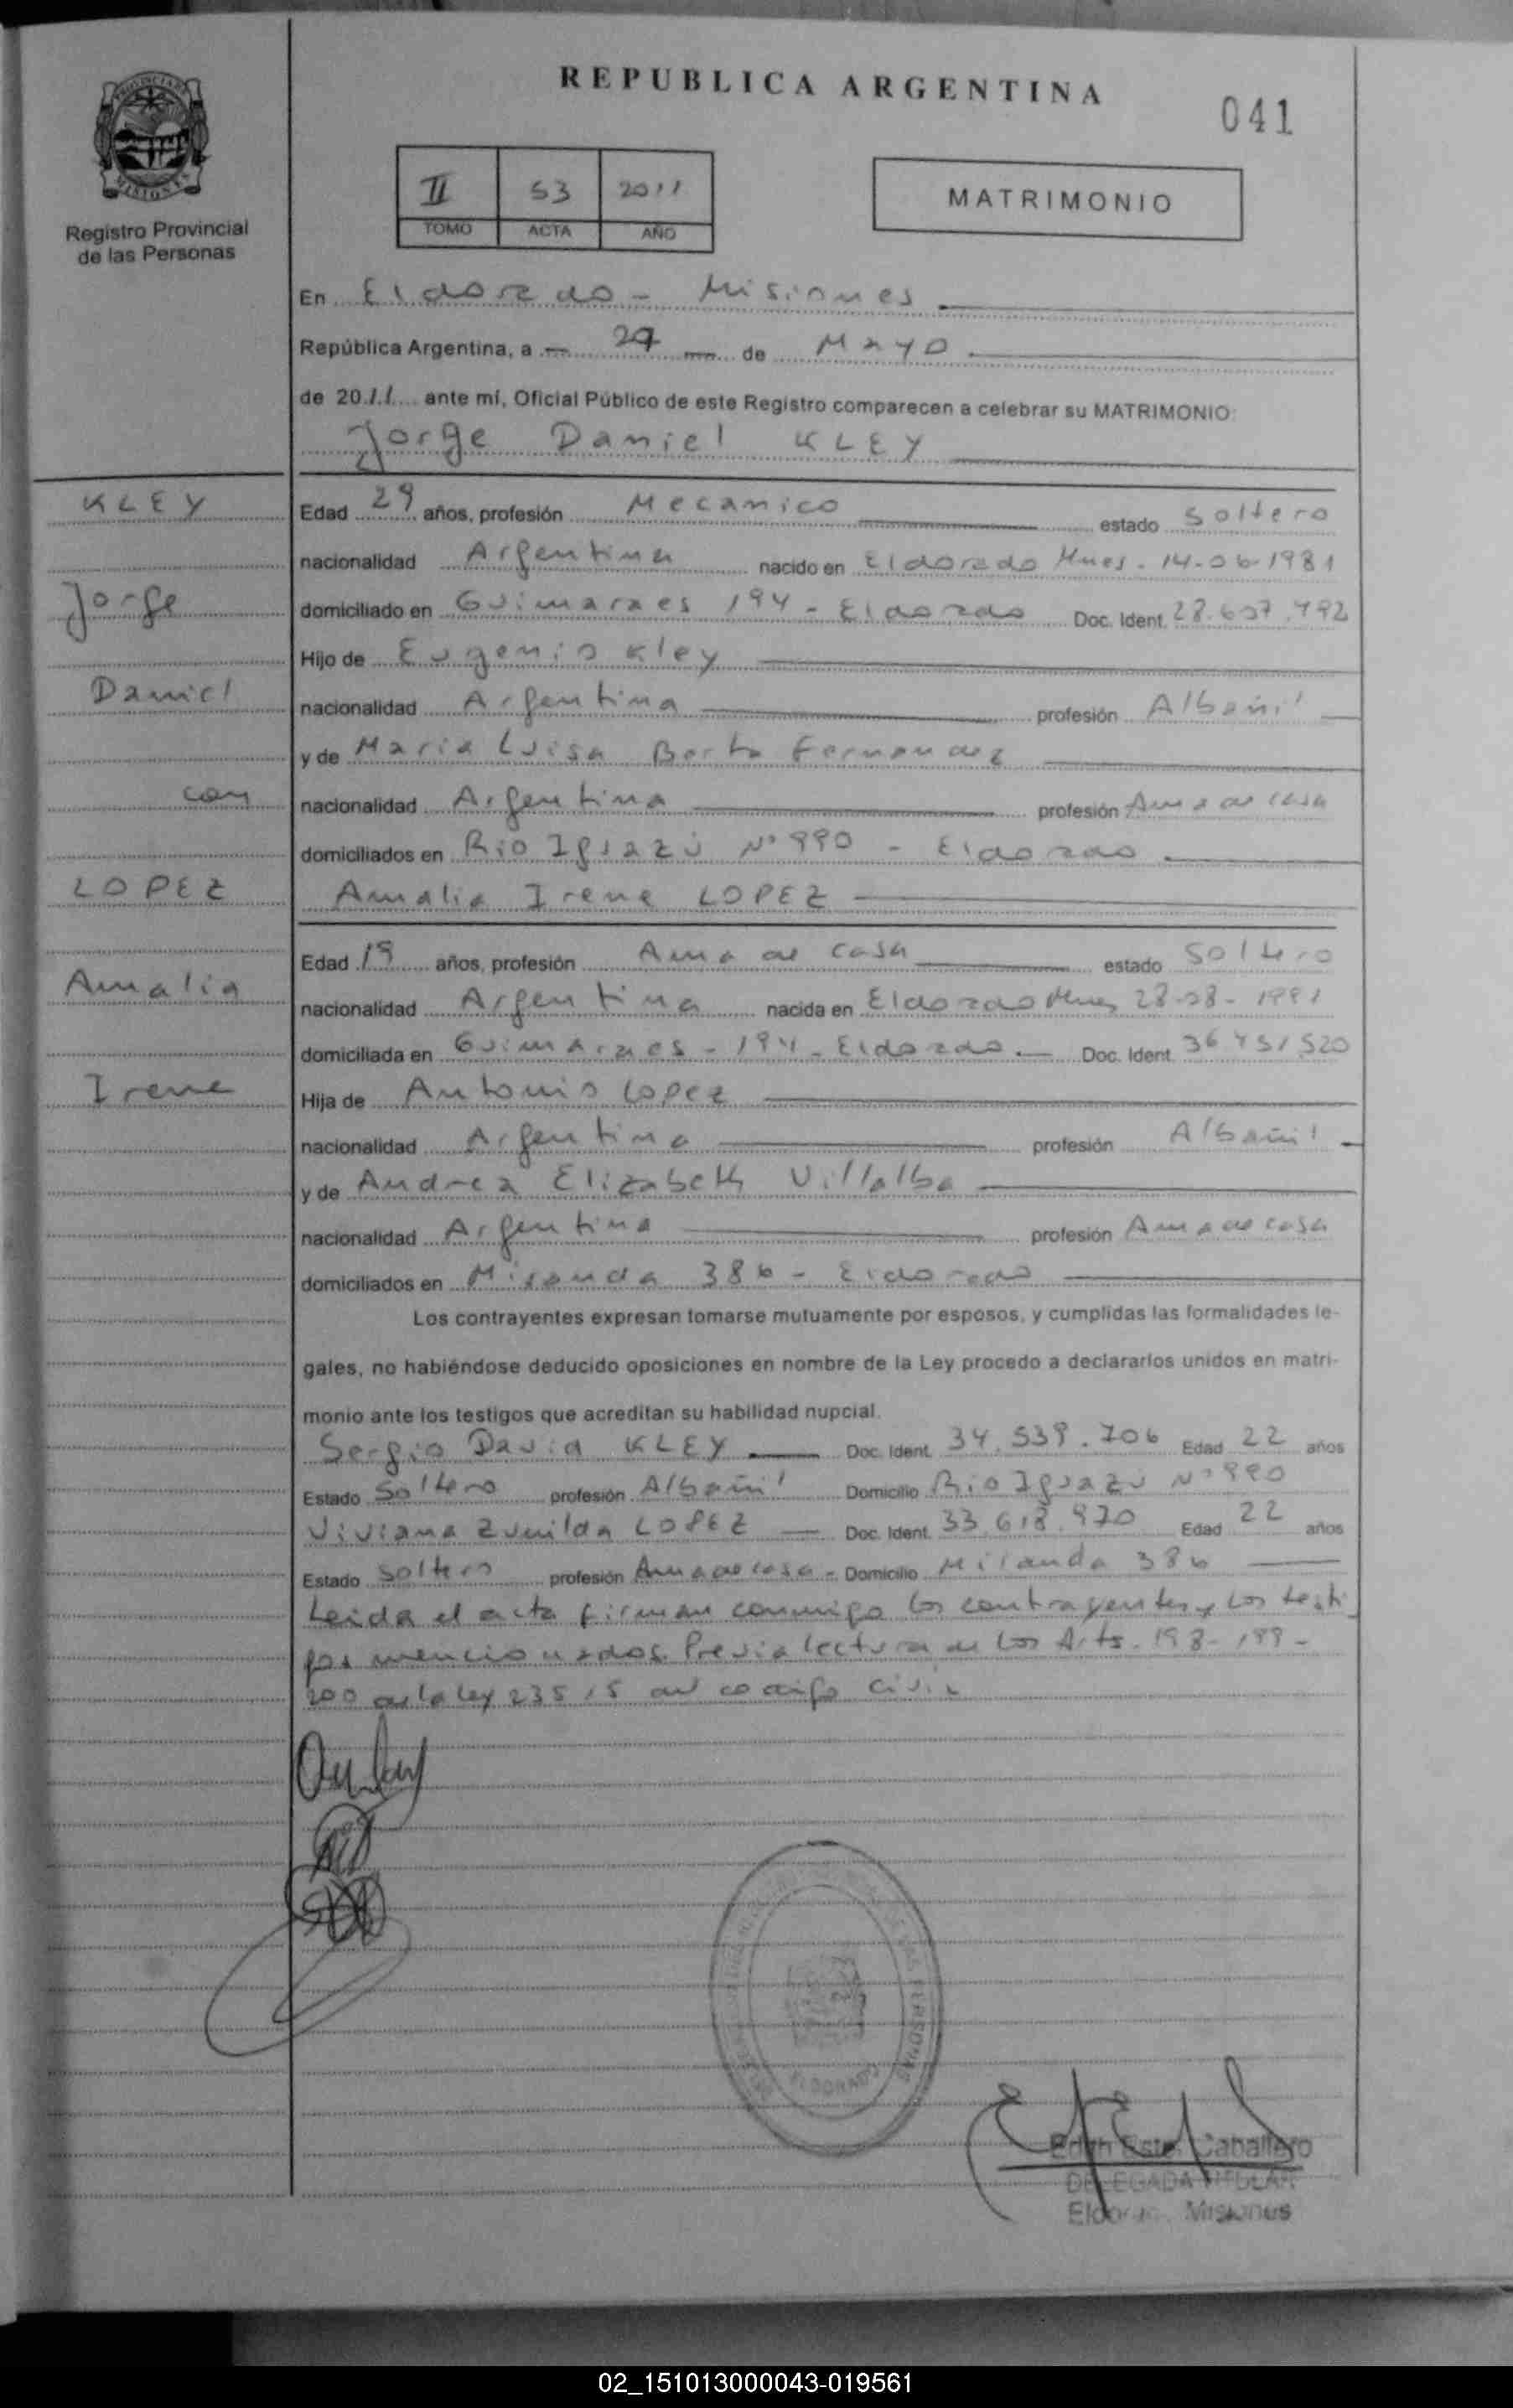 REPUBLICA ARGENTINA
041
II 53 2011
TOMO ACTA AÑO
MATRIMONIO
Registro Provincial
de las Personas
En Eldorado - Misiones
República Argentina, a 27 de Mayo
de 2011 ante mí, Oficial Público de este Registro comparecen a celebrar su MATRIMONIO:
Jorge Daniel KLEY
KLEY
Jorge
Daniel
con
LOPEZ
Amalia
Irene
Edad 29 años, profesión Mecanico estado Soltero
nacionalidad Argentina nacido en Eldorado Mnes. 14-06-1981
domiciliado en Guimaraes 194 - Eldorado Doc. Ident. 28.607.492
Hijo de Eugenio Kley
nacionalidad Argentina profesión Albañil
y de Maria Luisa Berta Fernandez
nacionalidad Argentina profesión Ama de casa
domiciliados en Rio Iguazú Nº 990 - Eldorado
Amalia Irene LOPEZ
Edad 19 años, profesión Ama de casa estado Soltero
nacionalidad Argentina nacida en Eldorado Mnes 28-08-1991
domiciliada en Guimaraes - 194 - Eldorado.- Doc. Ident. 36 451520
Hija de Antonio Lopez
nacionalidad Argentina profesión Albañil
y de Andrea Elizabeth Villalba
nacionalidad Argentina profesión Ama de casa
domiciliados en Miranda 386 - Eldorado
Los contrayentes expresan tomarse mutuamente por esposos, y cumplidas las formalidades le-
gales, no habiéndose deducido oposiciones en nombre de la Ley procedo a declararlos unidos en matri-
monio ante los testigos que acreditan su habilidad nupcial.
Sergio David KLEY Doc. Ident. 34.539.706 Edad 22 años
Estado Soltero profesión Albañil Domicilio Rio Iguazú Nº 990
Viviana Zunilda LOPEZ Doc. Ident. 33.618.970 Edad 22 años
Estado Soltero profesión Ama de casa - Domicilio Miranda 386
Leida el acta firman conmigo los contrayentes y los testi
gos mencionados. Previa lectura de los Arts. 198-199-
200 de la ley 23515 del codigo civil
ELDORADO
Edith Ester Caballero
DELEGADA TITULAR
Eldorado Misiones
02_151013000043-019561